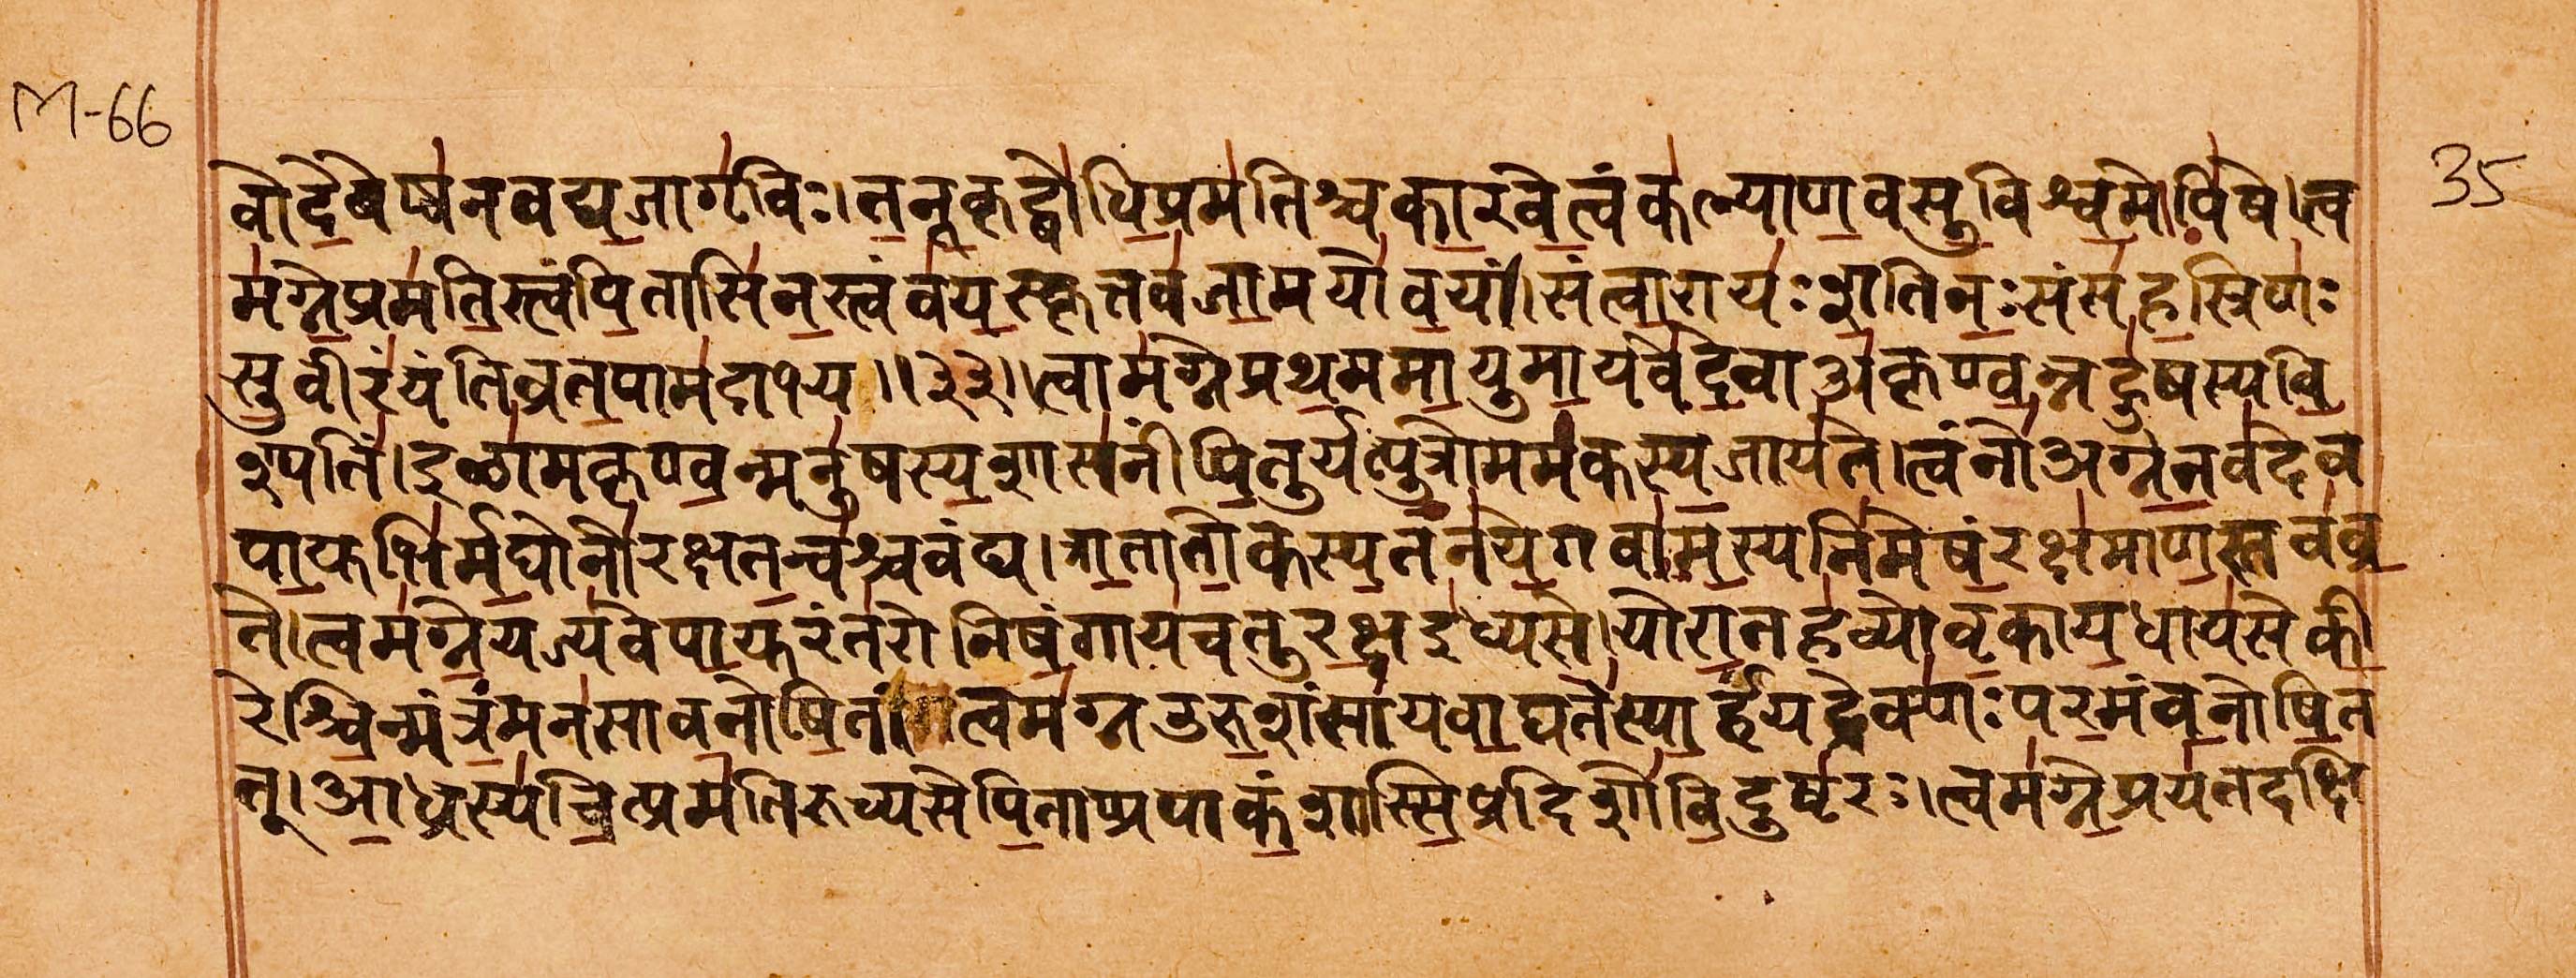 M-66
35
वोदेवेष्वनवद्यजागृविः।तनूकृद्बोधिप्रमतिश्चकारवेत्वंकल्याणवसुविश्वमोपिषे।त्व
मग्नेप्रमतिस्त्वंपितासिनस्त्वंवयस्कृत्तवजामयोवयं।संत्वारायःशतिनःसंसहस्रिणः
सुवीरंयंतिव्रतपामदाभ्य॥३३॥त्वामग्नेप्रथममायुमायवेदेवाअकृण्वन्नहुषस्यवि
श्पतिं।इळामकृण्वन्मनुषस्यशासनींपितुर्यत्पुत्रोममकस्यजायते।त्वंनोअग्नेतवदेव
पायुभिर्मघोनोरक्षतन्वश्चवंद्य।त्रातातोकस्यतनयेगवामस्यनिमेषंरक्षमाणस्तवव्र
ते।त्वमग्नेयज्यवेपायुरंतरोनिषंगायचतुरक्षइध्यसे।योरातहव्योवृकायधायसेकी
रेश्चिन्मंत्रंमनसावनोषितं।त्वमग्नउरुशंसायवाघतेस्पार्हंयद्रेक्णःपरमंवनोषित
त्।आध्रस्यचित्प्रमतिरुच्यसेपिताप्रपाकंशास्सिप्रदिशोविदुष्टरः।त्वमग्नेप्रयतदक्षि